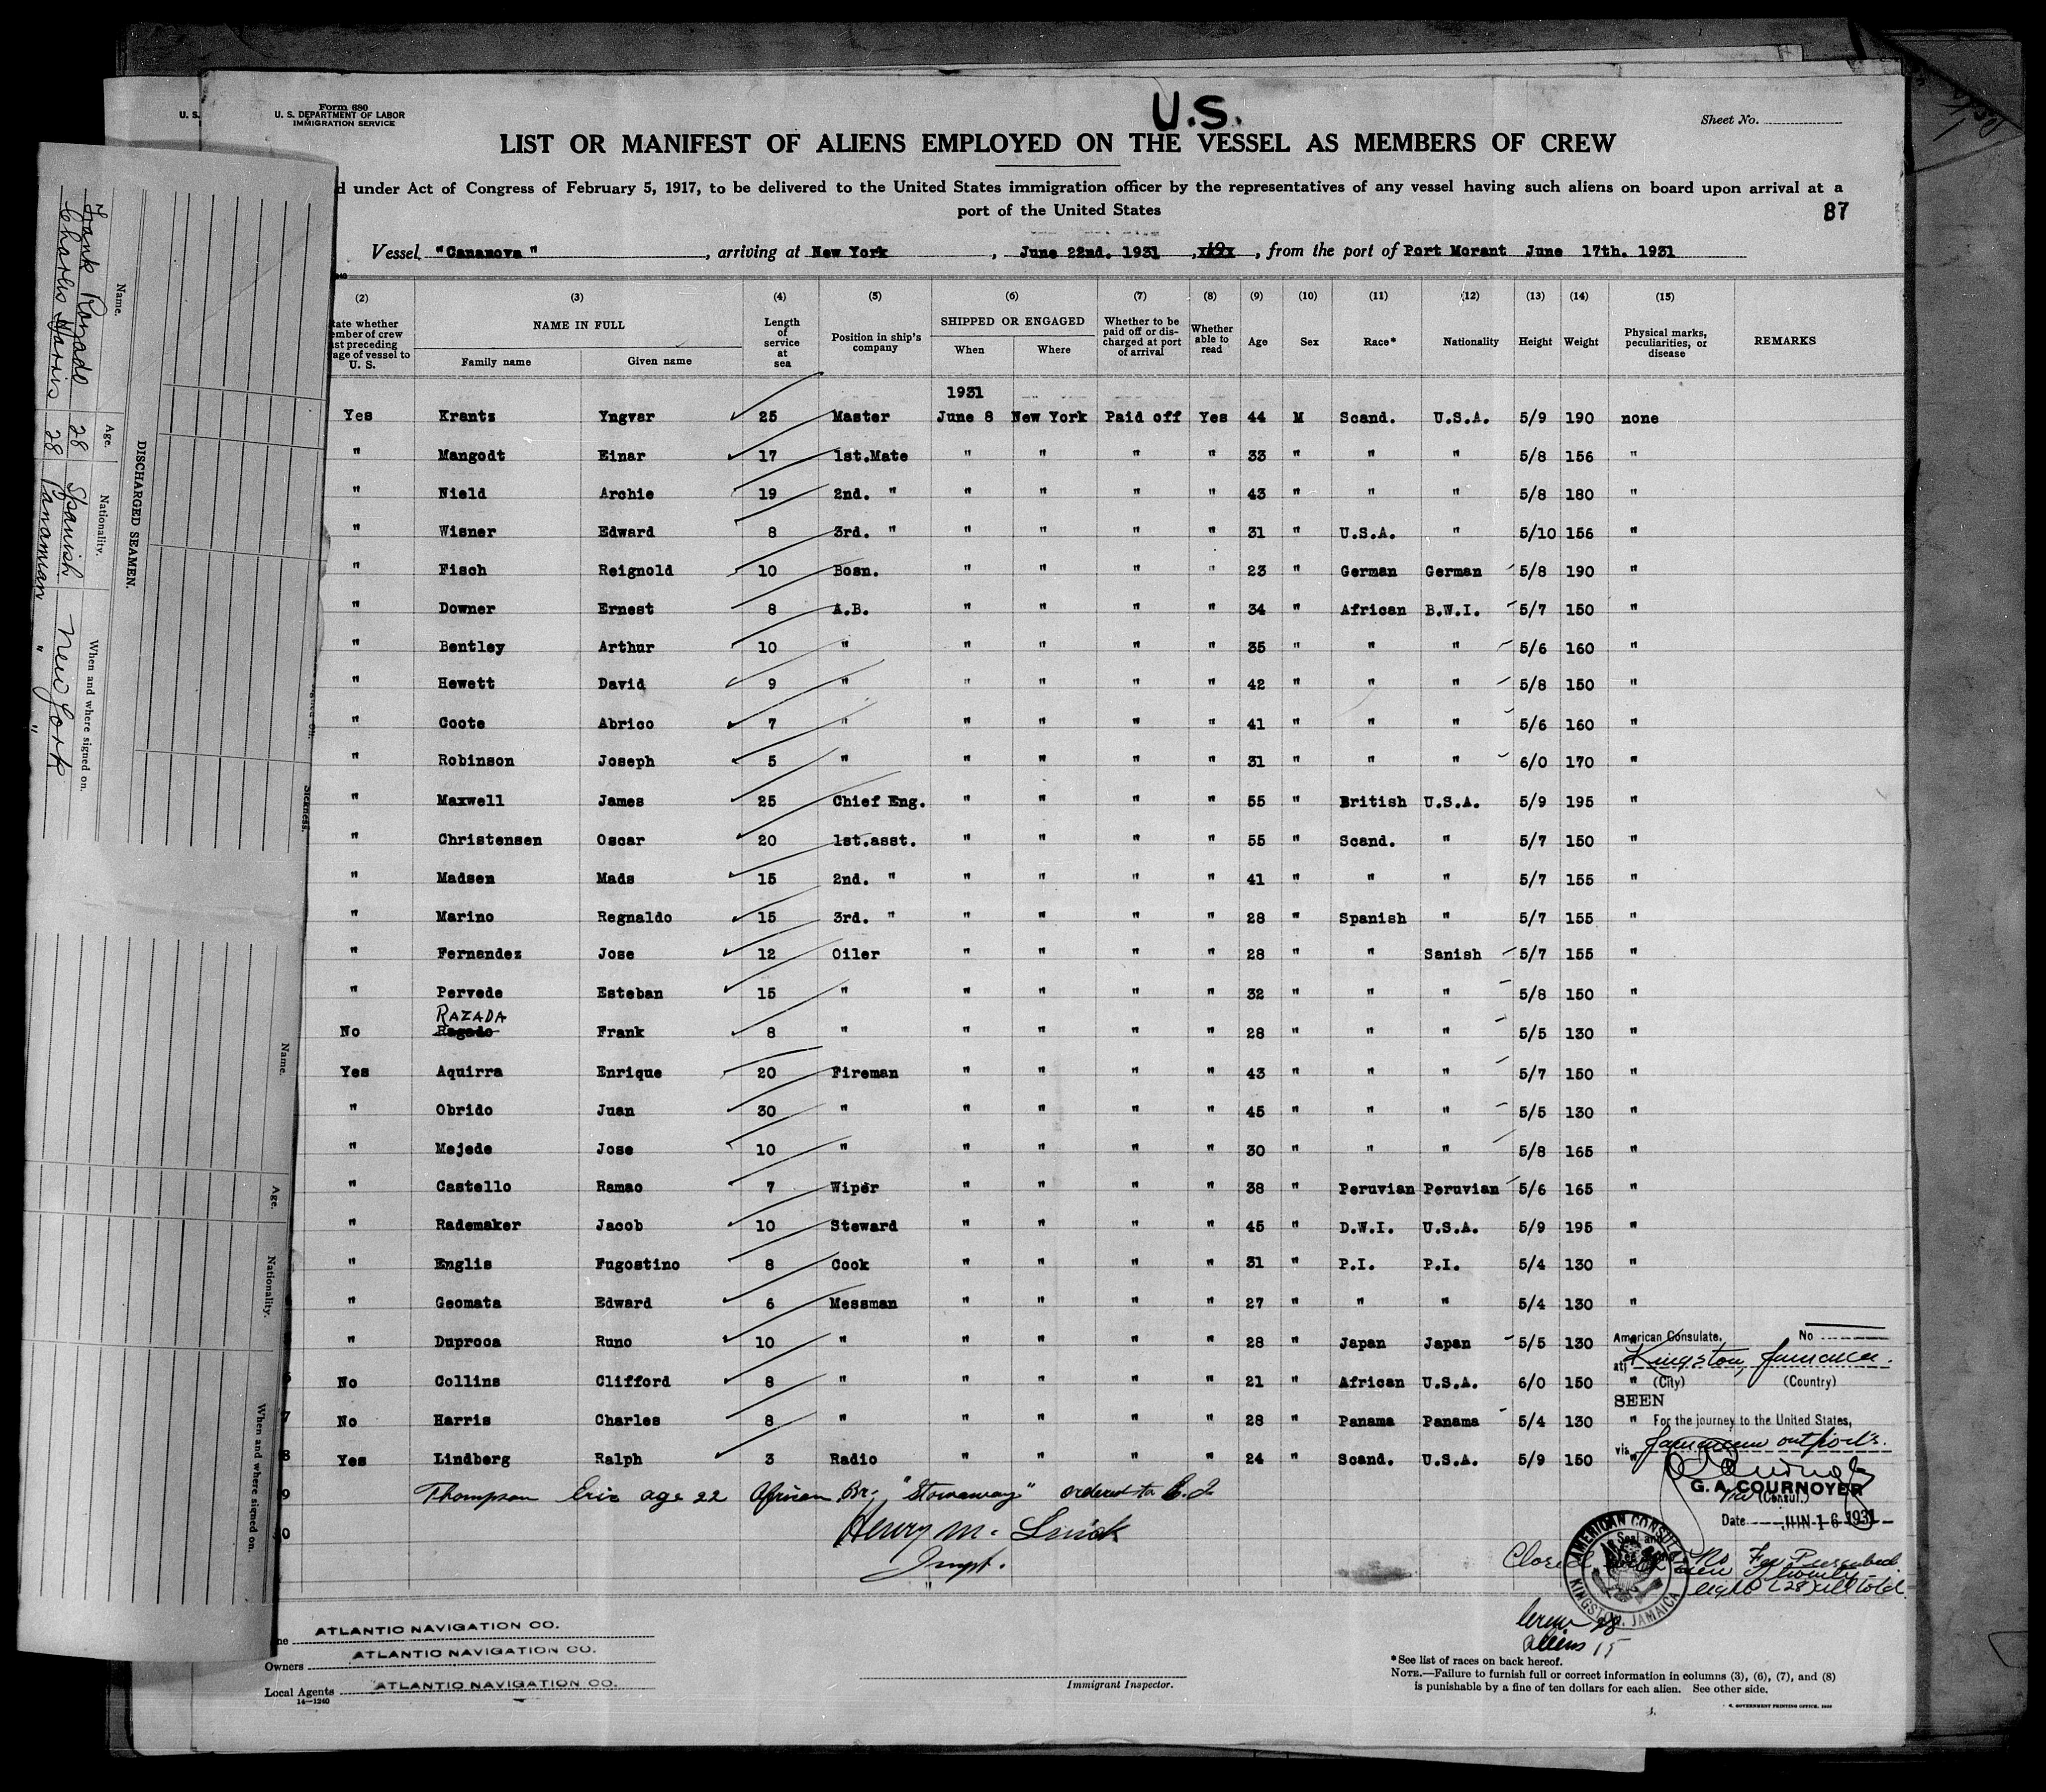 U.S.
Form 680
U. S. DEPARTMENT OF LABOR
IMMIGRATION SERVICE
U. S.
Sheet No.
LIST OR MANIFEST OF ALIENS EMPLOYED ON THE VESSEL AS MEMBERS OF CREW
d under Act of Congress of February 5, 1917, to be delivered to the United States immigration officer by the representatives of any vessel having such aliens on board upon arrival at a
port of the United States
87
Vessel "Cananova", arriving at New York, June 22nd. 1931, x19x, from the port of Port Morant June 17th. 1931
(2) (3) (4) (5) (6) (7) (8) (9) (10) (11) (12) (13) (14) (15)
tate whether ember of crew ast preceding age of vessel to U. S. NAME IN FULL Family name Given name Length of service at sea Position in ship's company SHIPPED OR ENGAGED When Where Whether to be paid off or discharged at port of arrival Whether able to read Age Sex Race* Nationality Height Weight Physical marks, peculiarities, or disease REMARKS
1931
Yes Krantz Yngvar 25 Master June 8 New York Paid off Yes 44 M Scand. U.S.A. 5/9 190 none
" Mangodt Einar 17 1st.Mate " " " " 33 " " " 5/8 156 "
" Nield Archie 19 2nd. " " " " " 43 " " " 5/8 180 "
" Wisner Edward 8 3rd. " " " " " 31 " U.S.A. " 5/10 156 "
" Fisch Reignold 10 Bosn. " " " " 23 " German German 5/8 190 "
" Downer Ernest 8 A.B. " " " " 34 " African B.W.I. 5/7 150 "
" Bentley Arthur 10 " " " " " 35 " " " 5/6 160 "
" Hewett David 9 " " " " " 42 " " " 5/8 150 "
" Coote Abrico 7 " " " " " 41 " " " 5/6 160 "
" Robinson Joseph 5 " " " " " 31 " " " 6/0 170 "
" Maxwell James 25 Chief Eng. " " " " 55 " British U.S.A. 5/9 195 "
" Christensen Oscar 20 1st.asst. " " " " 55 " Scand. " 5/7 150 "
" Madsen Mads 15 2nd. " " " " " 41 " " " 5/7 155 "
" Marino Regnaldo 15 3rd. " " " " " 28 " Spanish " 5/7 155 "
" Fernandez Jose 12 Oiler " " " " 28 " " Sanish 5/7 155 "
" Pervede Esteban 15 " " " " " 32 " " " 5/8 150 "
RAZADA
No Frank 8 " " " " " 28 " " " 5/5 130 "
Yes Aquirra Enrique 20 Fireman " " " " 43 " " " 5/7 150 "
" Obrido Juan 30 " " " " " 45 " " " 5/5 130 "
" Mejede Jose 10 " " " " " 30 " " " 5/8 165 "
" Castello Ramao 7 Wiper " " " " 38 " Peruvian Peruvian 5/6 165 "
" Rademaker Jacob 10 Steward " " " " 45 " D.W.I. U.S.A. 5/9 195 "
" Englis Fugostino 8 Cook " " " " 31 " P.I. P.I. 5/4 130 "
" Geomata Edward 6 Messman " " " " 27 " " " 5/4 130 "
" Duprooa Runo 10 " " " " " 28 " Japan Japan 5/5 130 "
No Collins Clifford 8 " " " " " 21 " African U.S.A. 6/0 150 "
7 No Harris Charles 8 " " " " " 28 " Panama Panama 5/4 130 "
8 Yes Lindberg Ralph 3 Radio " " " " 24 " Scand. U.S.A. 5/9 150 "
9 Thompson Eric age 22 African Br; "Stowaway" ordered to E. I.
0 Henry M.
Inspt.
American Consulate, No
at Kingston, Jamaica.
(City) (Country)
SEEN
For the journey to the United States,
via Jamaican outports.
G. A. COURNOYER
Vice (Consul.)
Date JUN 16 1931
AMERICAN CONSULATE
KINGSTON, JAMAICA
Closed No Fee Prescribed
twenty-
eight (28) all told
Crew 28
aliens 15
ne ATLANTIC NAVIGATION CO.
Owners ATLANTIC NAVIGATION CO.
Local Agents ATLANTIC NAVIGATION CO.
14—1240
Immigrant Inspector.
*See list of races on back hereof.
NOTE.—Failure to furnish full or correct information in columns (3), (6), (7), and (8)
is punishable by a fine of ten dollars for each alien. See other side.
GOVERNMENT PRINTING OFFICE
DISCHARGED SEAMEN.
Name. Age. Nationality. When and where signed on.
Frank Razada 28 Spanish New York
Charles Harris 28 Panamanian " "
Sickness.
Name. Age. Nationality. When and where signed on.